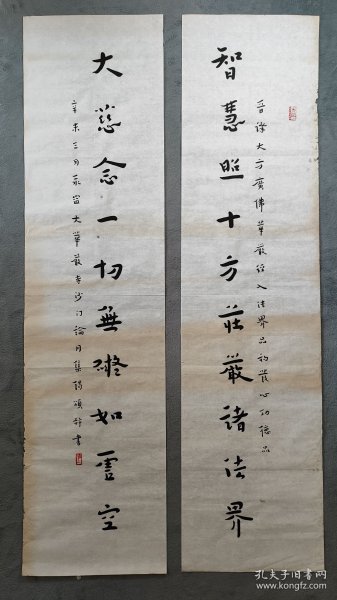 晉譯大方廣佛華嚴經入法界品初發心功德品
智慧照十方莊嚴諸法界
大慈念一切無礙如虛空
辛未三月大華嚴寺沙門論月集偈頌辭書
孔夫子旧书网
kongfz.com